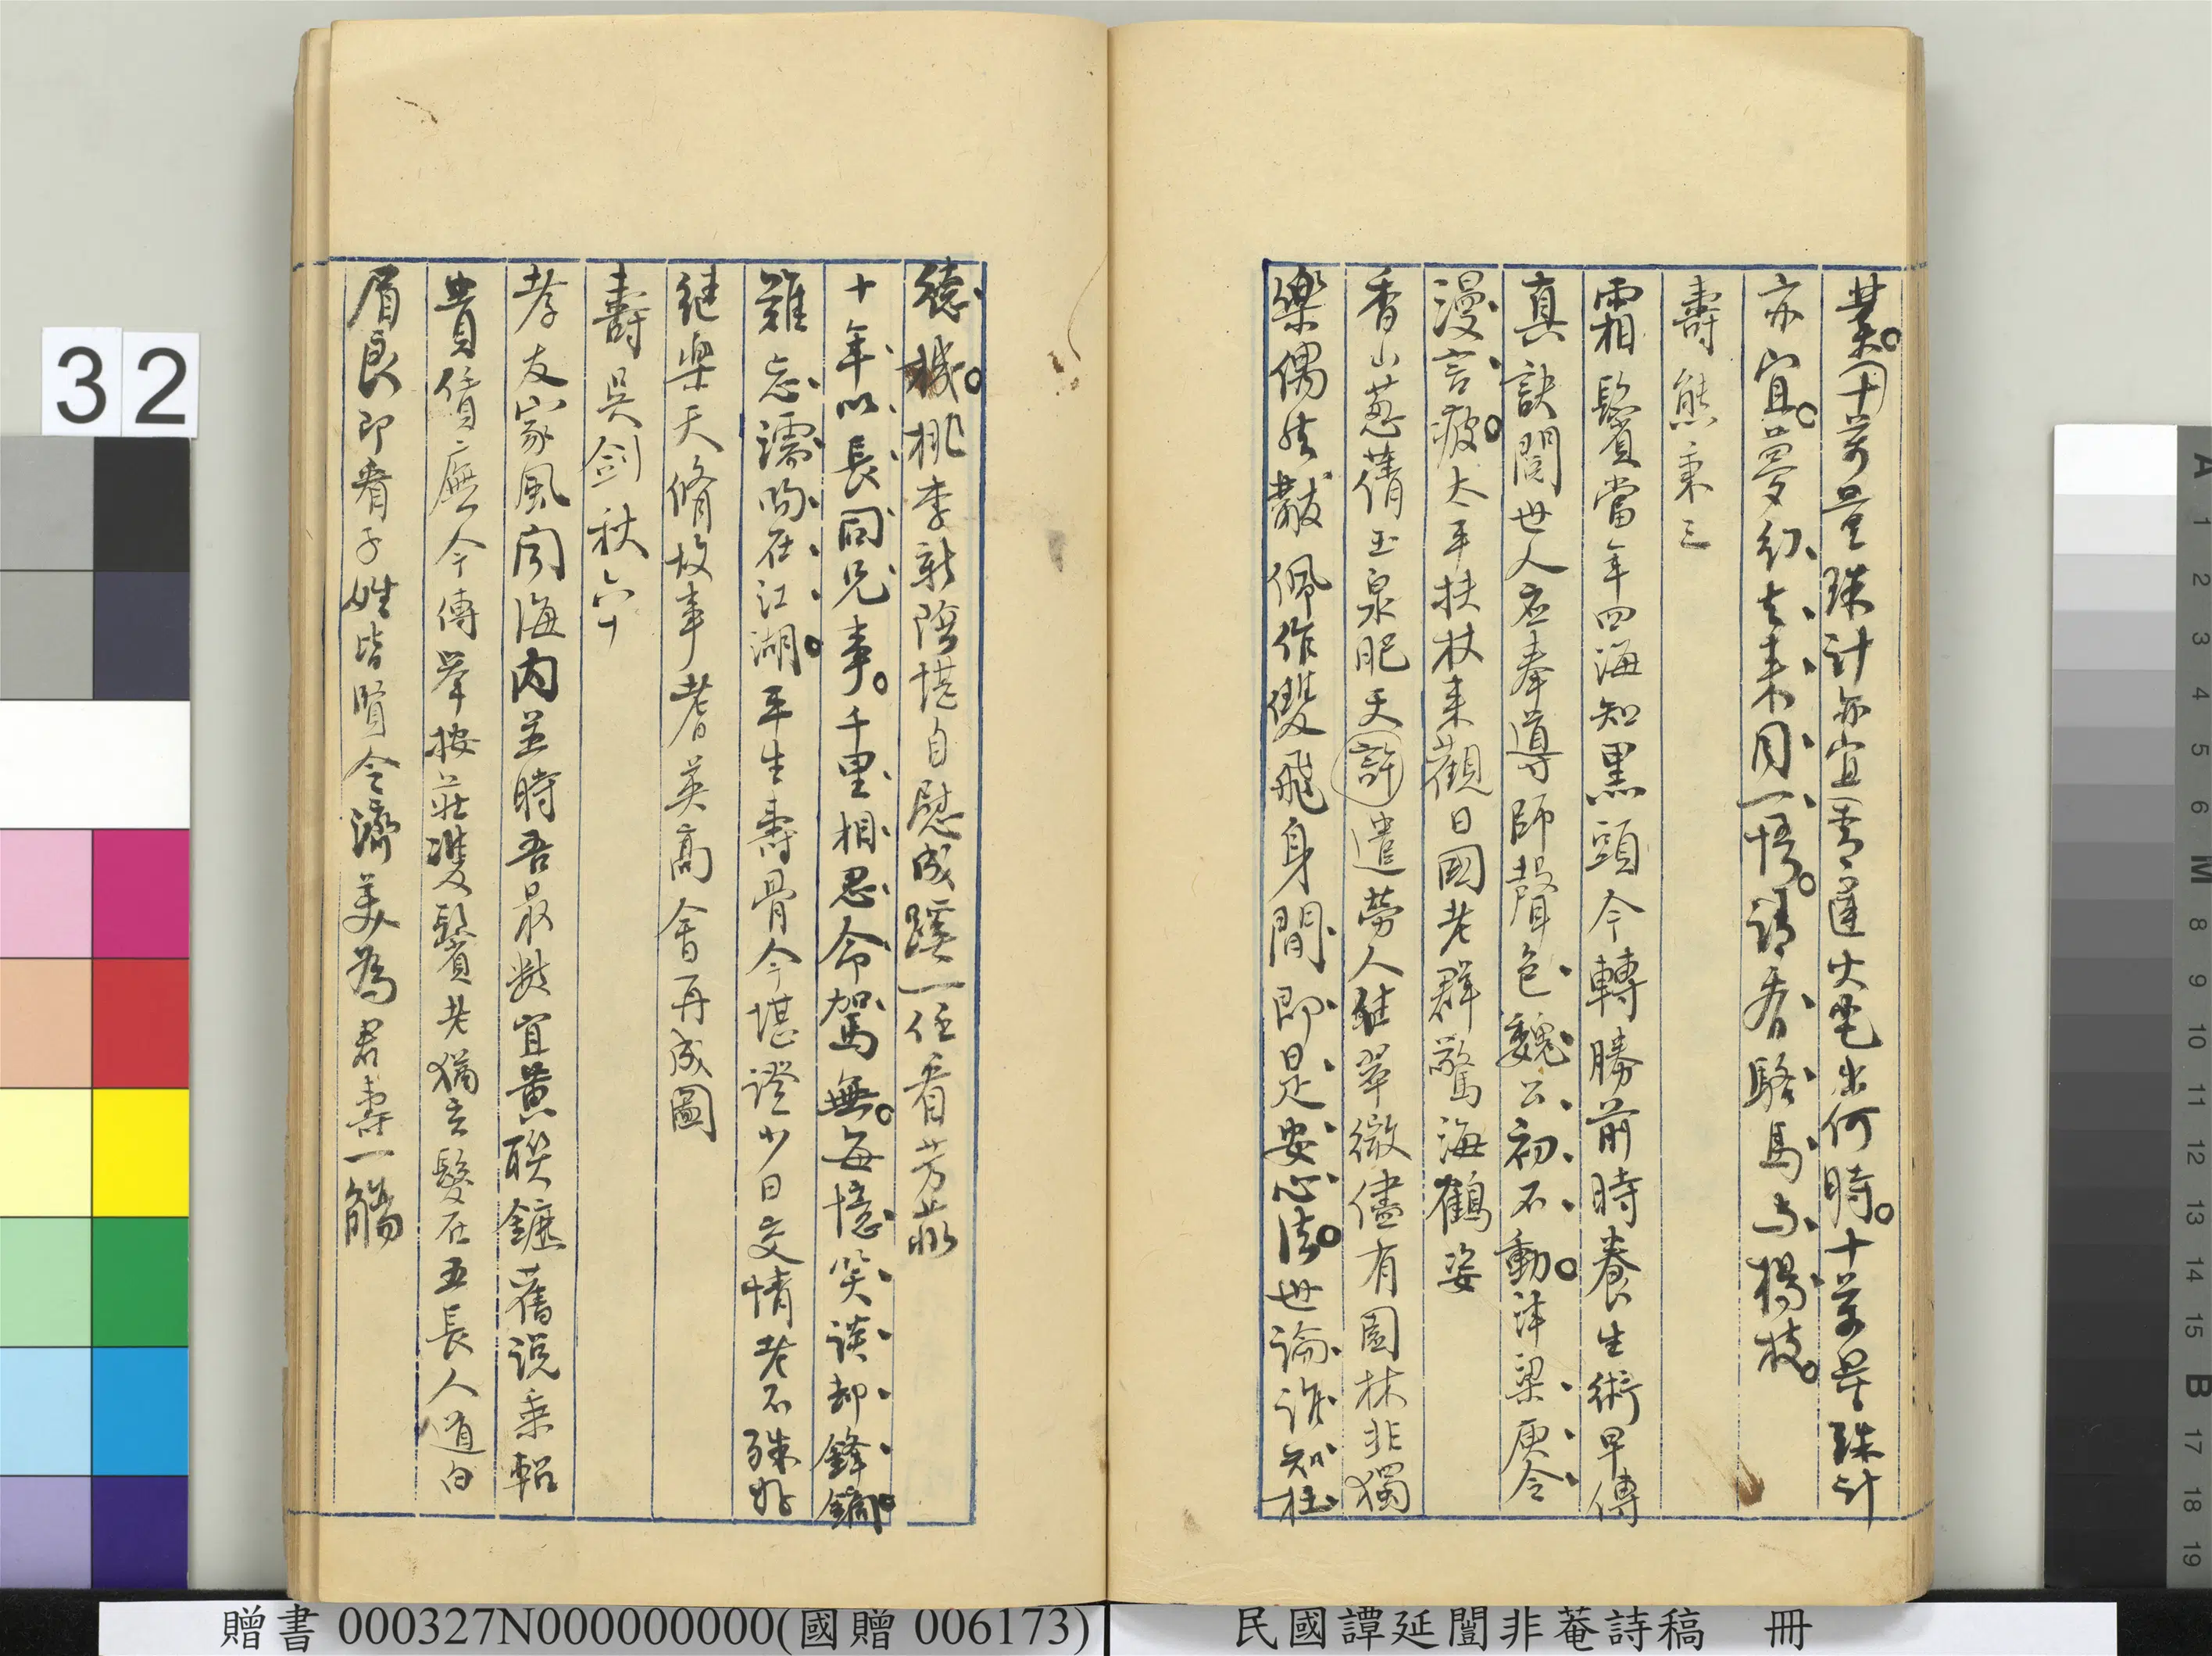 業十萬量珠計亦宜青蓮火宅出何時十萬量珠計
亦宜夢幻去來同一悟請看駱馬與楊枝
壽熊秉三
霜鬢當年四海知黑頭今轉勝前時養生術早傳
真訣閱世人應奉導師聲色魏公初不動津梁庾令
漫言疲太平扶杖來觀日國老群驚海鶴姿
香山蔥蒨玉泉肥天許遣勞人住翠微儘有園林非獨
樂偶然黻佩作雙飛身閒即是安心法世論誰知杜
德機桃李新陰堪自慰成蹊一任看芳菲
十年以長同兄事千里相思命駕無每憶笑談却鋒鏑
難忘濡呴在江湖平生壽骨今堪證少日交情老不殊好
繼樂天脩故事耆英高會再成圖
壽吳劍秋六十
孝友家風聞海內並時吾最數宜黃聯鑣舊說乘軺
貴賃廡今傳舉按莊雙鬢老猶玄髮在五長人道白
眉良即看子姓皆賢令濟美為君壽一觴
32
贈書 000327N000000000(國贈 006173)
民國譚延闓非菴詩稿 冊
A 1 2 3 4 5 6 M 8 9 10 11 12 13 14 15 B 17 18 19